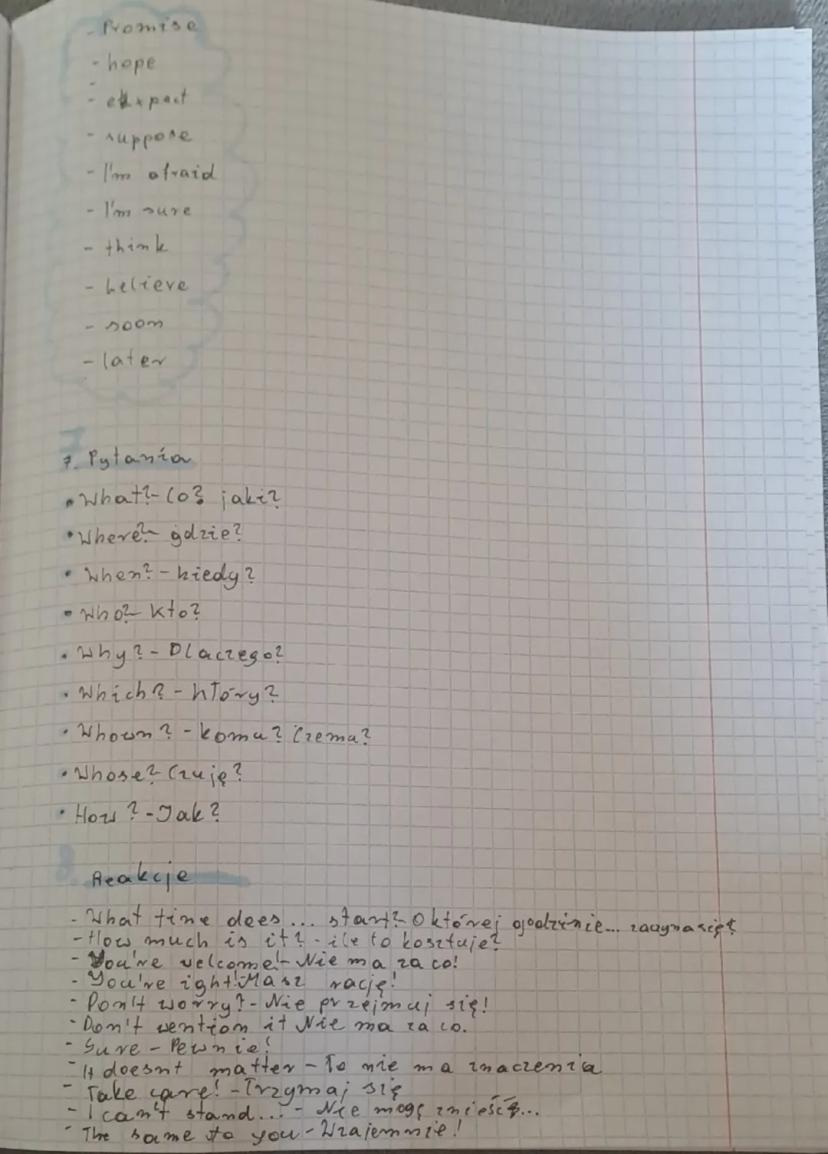 - Promise
- hope
- expect
- suppose
- I'm afraid
- I'm sure
- think
- believe
- soon
- later
7. Pytania
• What?- Co? jaki?
• Where?- gdzie?
• When? - kiedy?
• Who?- kto?
• Why? - Dlaczego?
• Which? - który?
• Whown? - komu? Czemu?
• Whose? Czuję?
• How? - Jak?
8. Reakcje
- What time dees ... start? O której godzinie... zaczyna się?
- How much is it? - ile to kosztuje?
- You're welcome! - Nie ma za co!
- You're ight! Masz rację!
- Don't worry? - Nie przejmuj się!
- Don't wention it Nie ma za co.
- Sure - Pewnie!
- It doesnt matter - To nie ma znaczenia
- Take care! - Trzymaj się
- I can't stand... - Nie mogę znieść...
- The same to you - Wzajemnie!